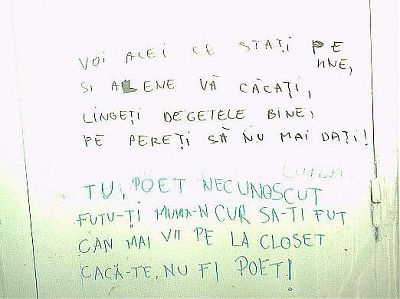 VOI ACEI CE STAȚI PE
VINE,
SI ALENE VĂ CĂCAȚI,
LINGEȚI DEGETELE BINE,
PE PEREȚI SĂ NU MAI DAȚI!
TU, POET NECUNOSCUT
FUTU-ȚI MUMA-N CUR SA-TI FUT
CAN MAI VII PE LA CLOSET
CACĂ-TE, NU FI POET!